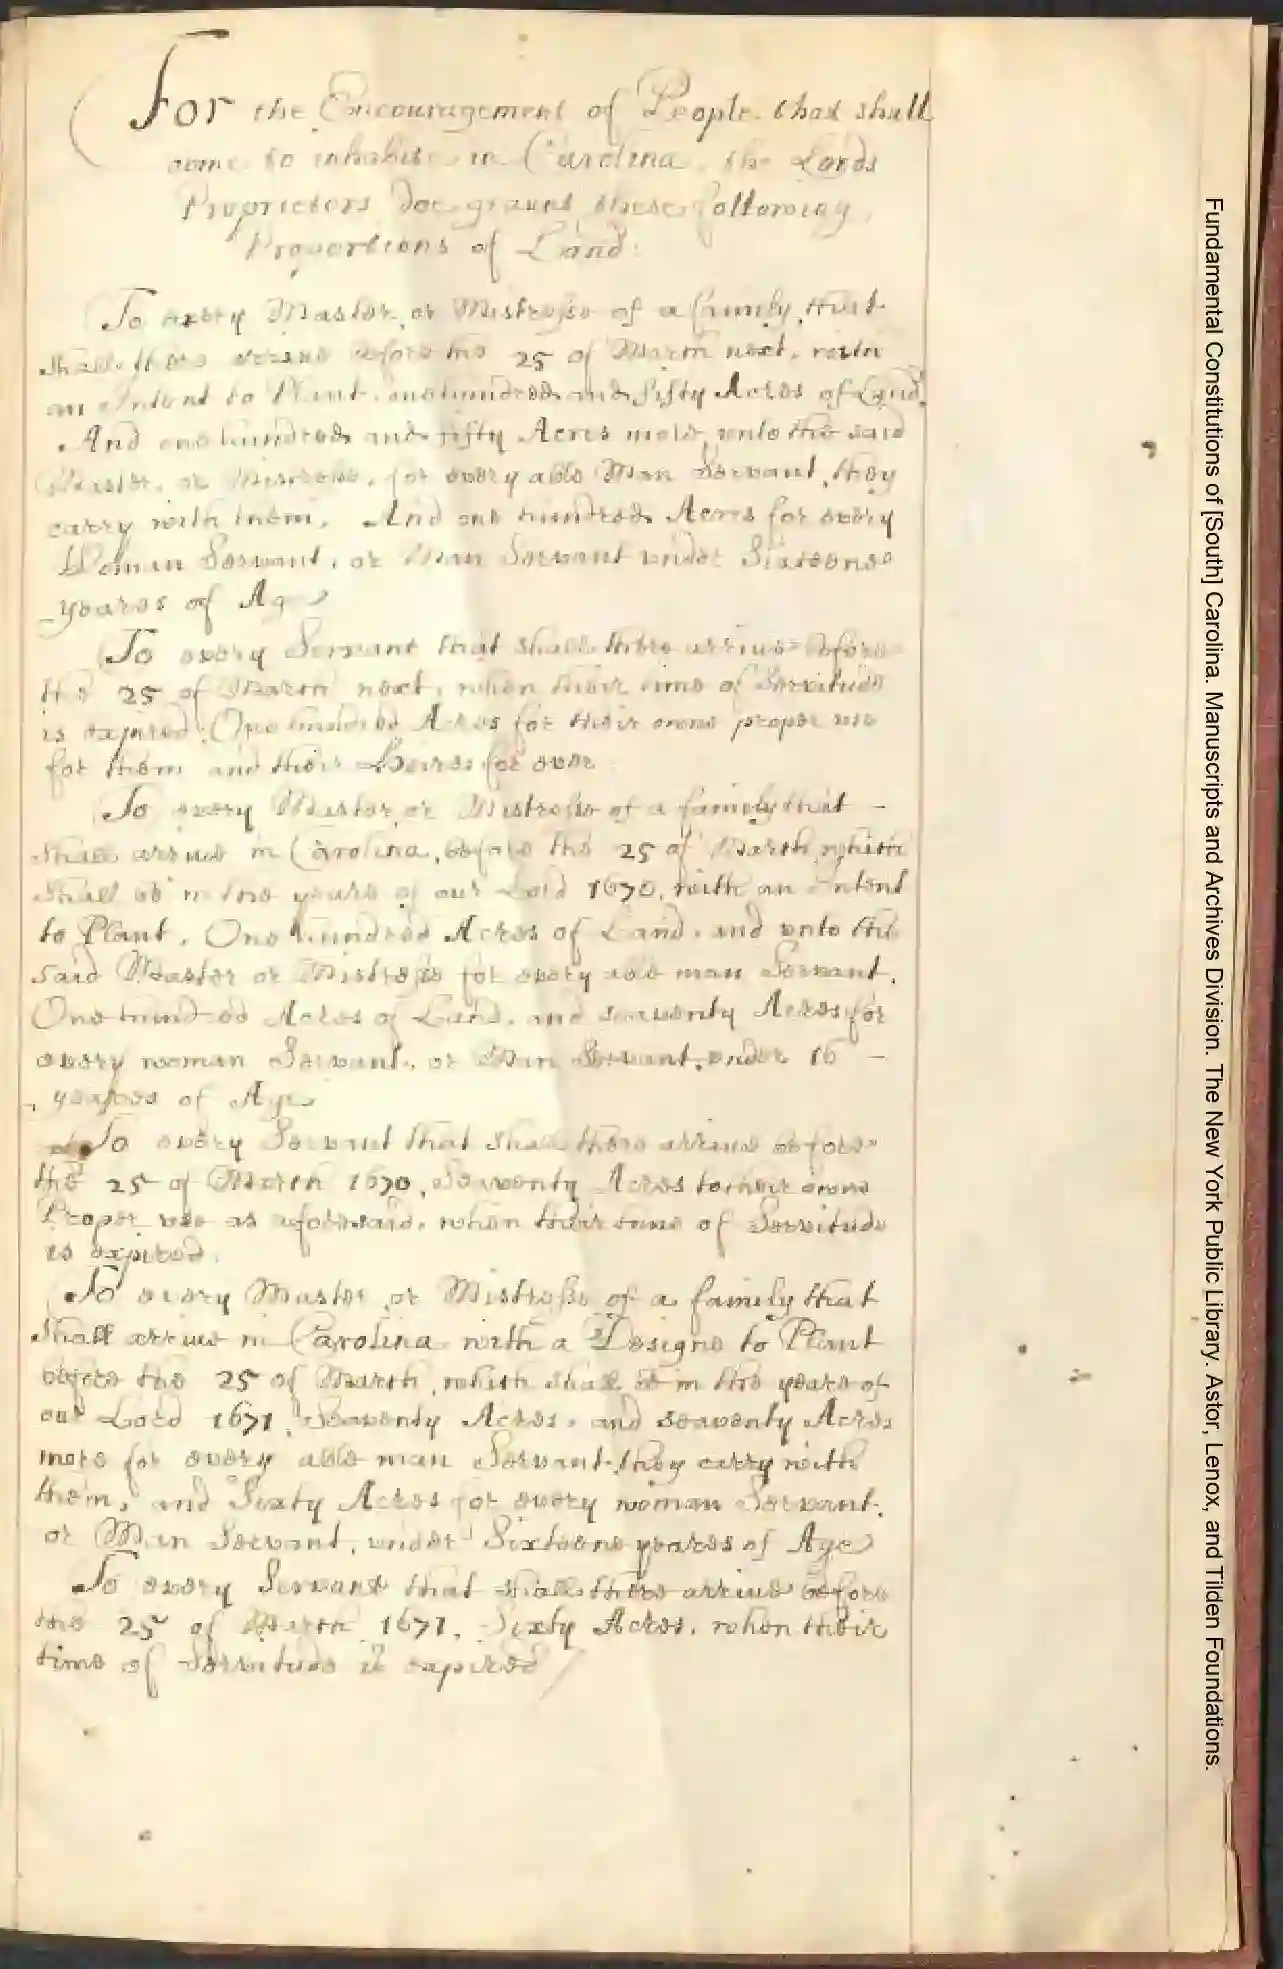 For the Encouragement of People that shall
come to inhabite in Carolina, the Lords
Proprietors doe graunt these following
Proportions of Land:
To every Master or Mistresse of a family that
shall there arrive before the 25 of March next, with
an Intent to Plant, one hundred and fifty Acres of Land,
And one hundred and fifty Acres more unto the said
Master, or Mistresse, for every able Man Servant, they
carry with them, And one hundred Acres for every
Woman Servant, or Man Servant under Sixteene
yeares of Age
To every Servant that shall there arrive before
the 25 of March next, when their time of Servitude
is expired One hundred Acres for their owne proper use
for them and their Heires for ever
To every Master or Mistresse of a family that -
shall arrive in Carolina, before the 25 of March, which
shall be in the yeare of our Lord 1670, with an Intent
to Plant, One hundred Acres of Land, and unto the
said Master or Mistresse for every able man Servant,
One hundred Acres of Land, and seaventy Acres for
every woman Servant, or Man Servant, under 16 -
yeares of Age
To every Servant that shall there arrive before
the 25 of March 1670, Seaventy Acres to their owne
Proper use as aforesaid, when their time of Servitude
is expired.
To every Master or Mistresse of a family that
shall arrive in Carolina with a Designe to Plant
before the 25 of March, which shall be in the yeare of
our Lord 1671, Seaventy Acres, and seaventy Acres
more for every able man Servant they carry with
them, and Sixty Acres for every woman Servant,
or Man Servant, under Sixteene yeares of Age
To every Servant that shall there arrive before
the 25 of March 1671, Sixty Acres, when their
time of Servitude is expired /
Fundamental Constitutions of [South] Carolina. Manuscripts and Archives Division. The New York Public Library. Astor, Lenox, and Tilden Foundations.